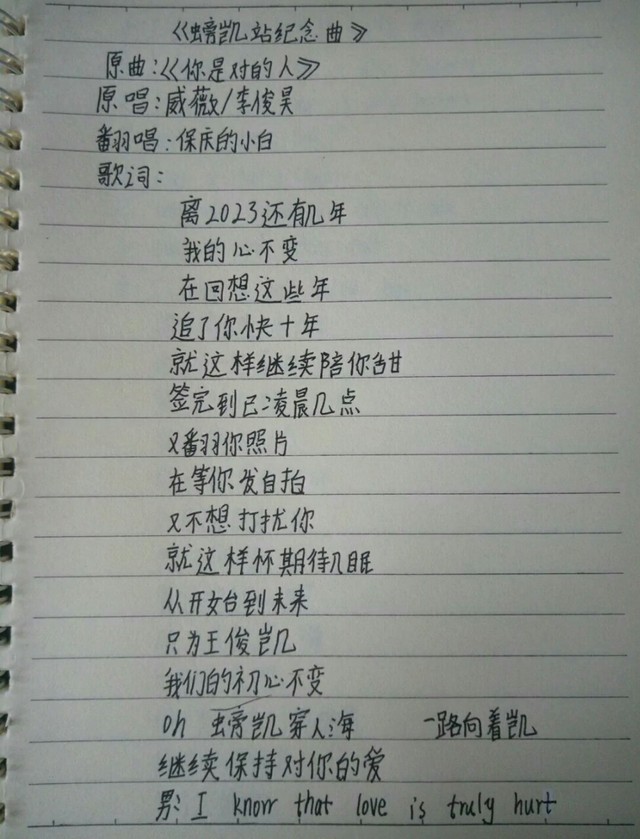 《螃凯站纪念曲》
原曲:《你是对的人》
原唱:威薇/李俊昊
翻唱:保庆的小白
歌词:
离2023还有几年
我的心不变
在回想这些年
追了你快十年
就这样继续陪你甜
签完到已凌晨几点
又翻你照片
在等你发自拍
又不想打扰你
就这样怀期待入眠
从开始到未来
只为王俊凯
我们的初心不变
oh 螃凯穿人海 一路向着凯
继续保持对你的爱
男: I know that love is truly hurt